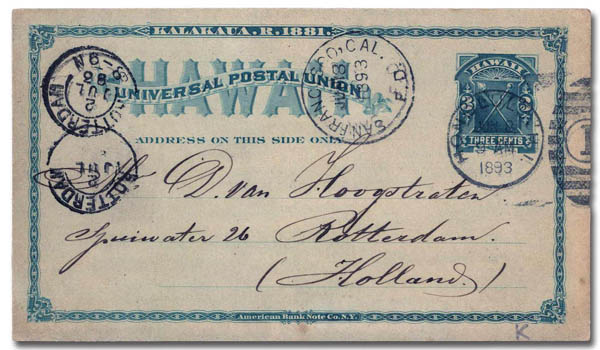 KALAKAUA. R. 1881.
HAWAII
UNIVERSAL POSTAL UNION.
ADDRESS ON THIS SIDE ONLY.
HAWAII
3 3
THREE CENTS
SAN FRANCISCO, CAL.
F.D.
HONOLULU
1893
1
ROTTERDAM
8-9N
2
JUL
93
ROTTERDAM
2
JUL
D. van Hoogstraten
Spuiwater 26 Rotterdam.
(Holland.)
American Bank Note Co. N.Y.
K